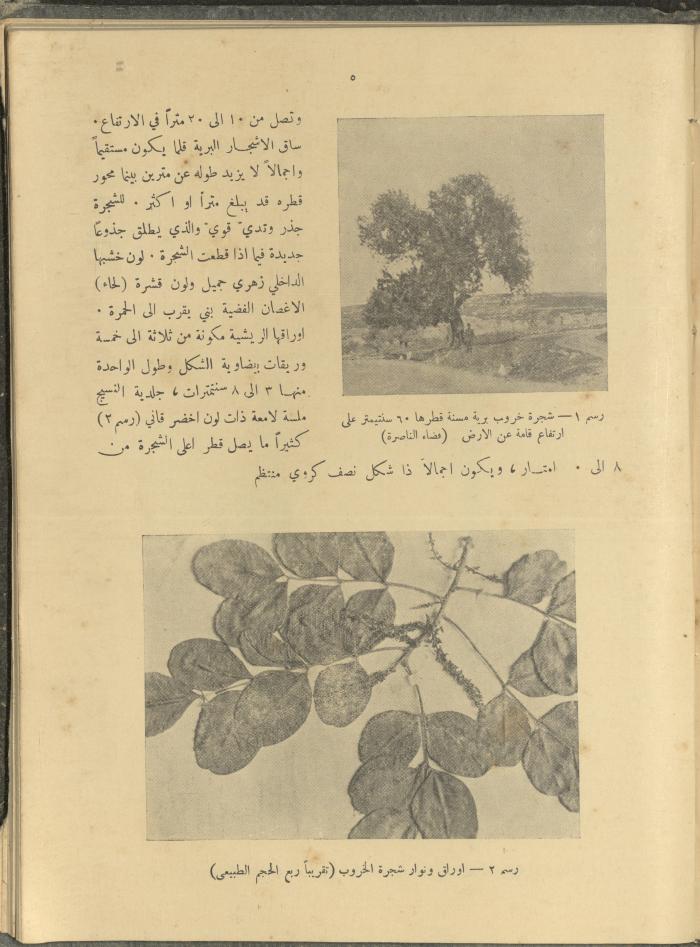 ٥
وتصل من ١٠ الى ٢٠ متراً في الارتفاع ٠
ساق الاشجار البرية قلما يكون مستقيماً
واجمالاً لا يزيد طوله عن مترين بينما محور
قطره قد يبلغ متراً او اكثر ٠ للشجرة
جذر وتديّ قويّ والذي يطلق جذوعًا
جديدة فيما اذا قطعت الشجرة ٠ لون خشبها
الداخلي زهري جميل ولون قشرة (لحاء)
الاغصان الفضية بني يقرب الى الحمرة ٠
اوراقها الريشية مكونة من ثلاثة الى خمسة
وريقات بيضاوية الشكل وطول الواحدة
منهــا ٣ الى ٨ سنتمترات ، جلدية النسيج
ملسة لامعة ذات لون اخضر قاني (رسم ٢)
كثيراً ما يصل قطر اعلى الشجرة من
٨ الى ٠ امتــار ، ويكون اجمالاً ذا شكل نصف كروي منتظم
رسم ١ — شجرة خروب برية مسنة قطرها ٦٠ سنتيمتر على
ارتفاع قامة عن الارض (قضاء الناصرة)
رسم ٢ — اوراق ونوار شجرة الخروب (تقريباً ربع الحجم الطبيعي)